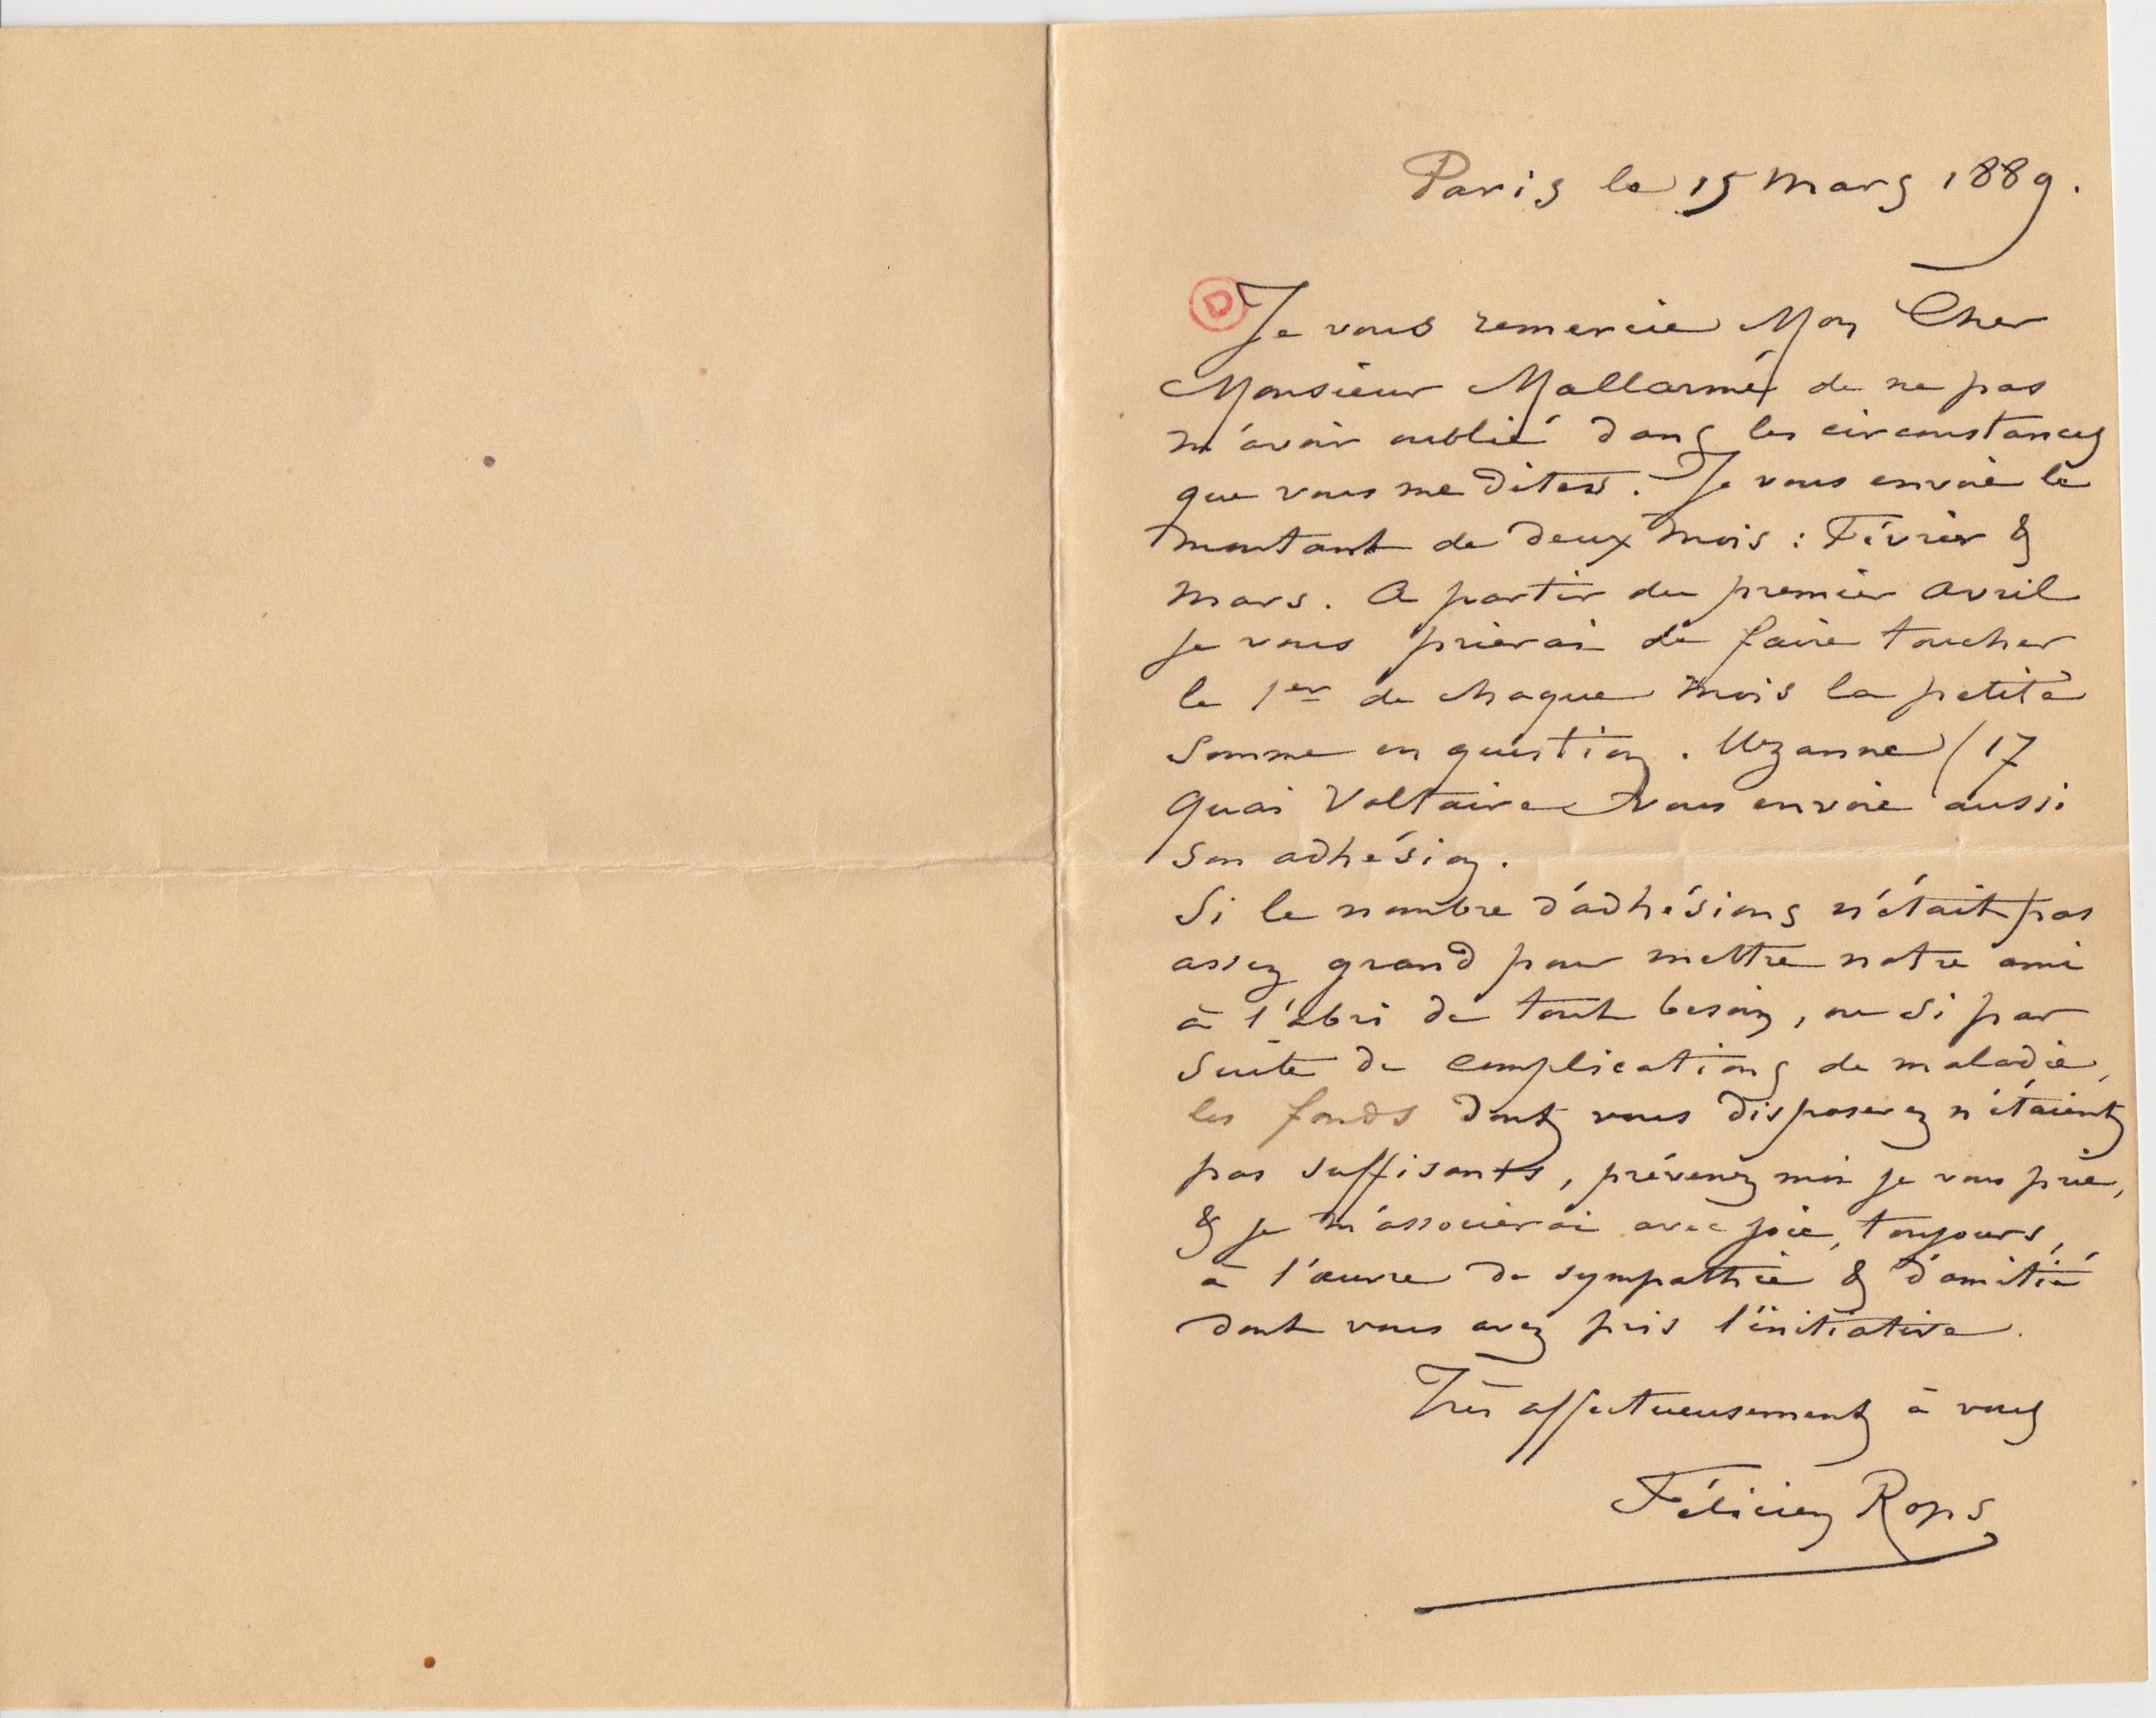 Paris le 15 Mars 1889.
D
Je vous remercie Mon Cher
Monsieur Mallarmé de ne pas
m'avoir oublié dans les circonstances
que vous me dites. Je vous envoie le
montant de deux mois : Février &
Mars. A partir du premier Avril
je vous prierai de faire toucher
le 1er de chaque mois la petite
somme en question. Uzanne (17
Quai Voltaire) vous envoie aussi
son adhésion.
Si le nombre d'adhésions n'était pas
assez grand pour mettre notre ami
à l'abri de tout besoin, ou si par
suite de complications de maladie,
les fonds dont vous disposerez n'étaient
pas suffisants, prévenez moi je vous prie,
& je m'associerai avec joie, toujours,
à l'œuvre de sympathie & d'amitié
dont vous avez pris l'initiative.
Très affectueusement à vous
Félicien Rops